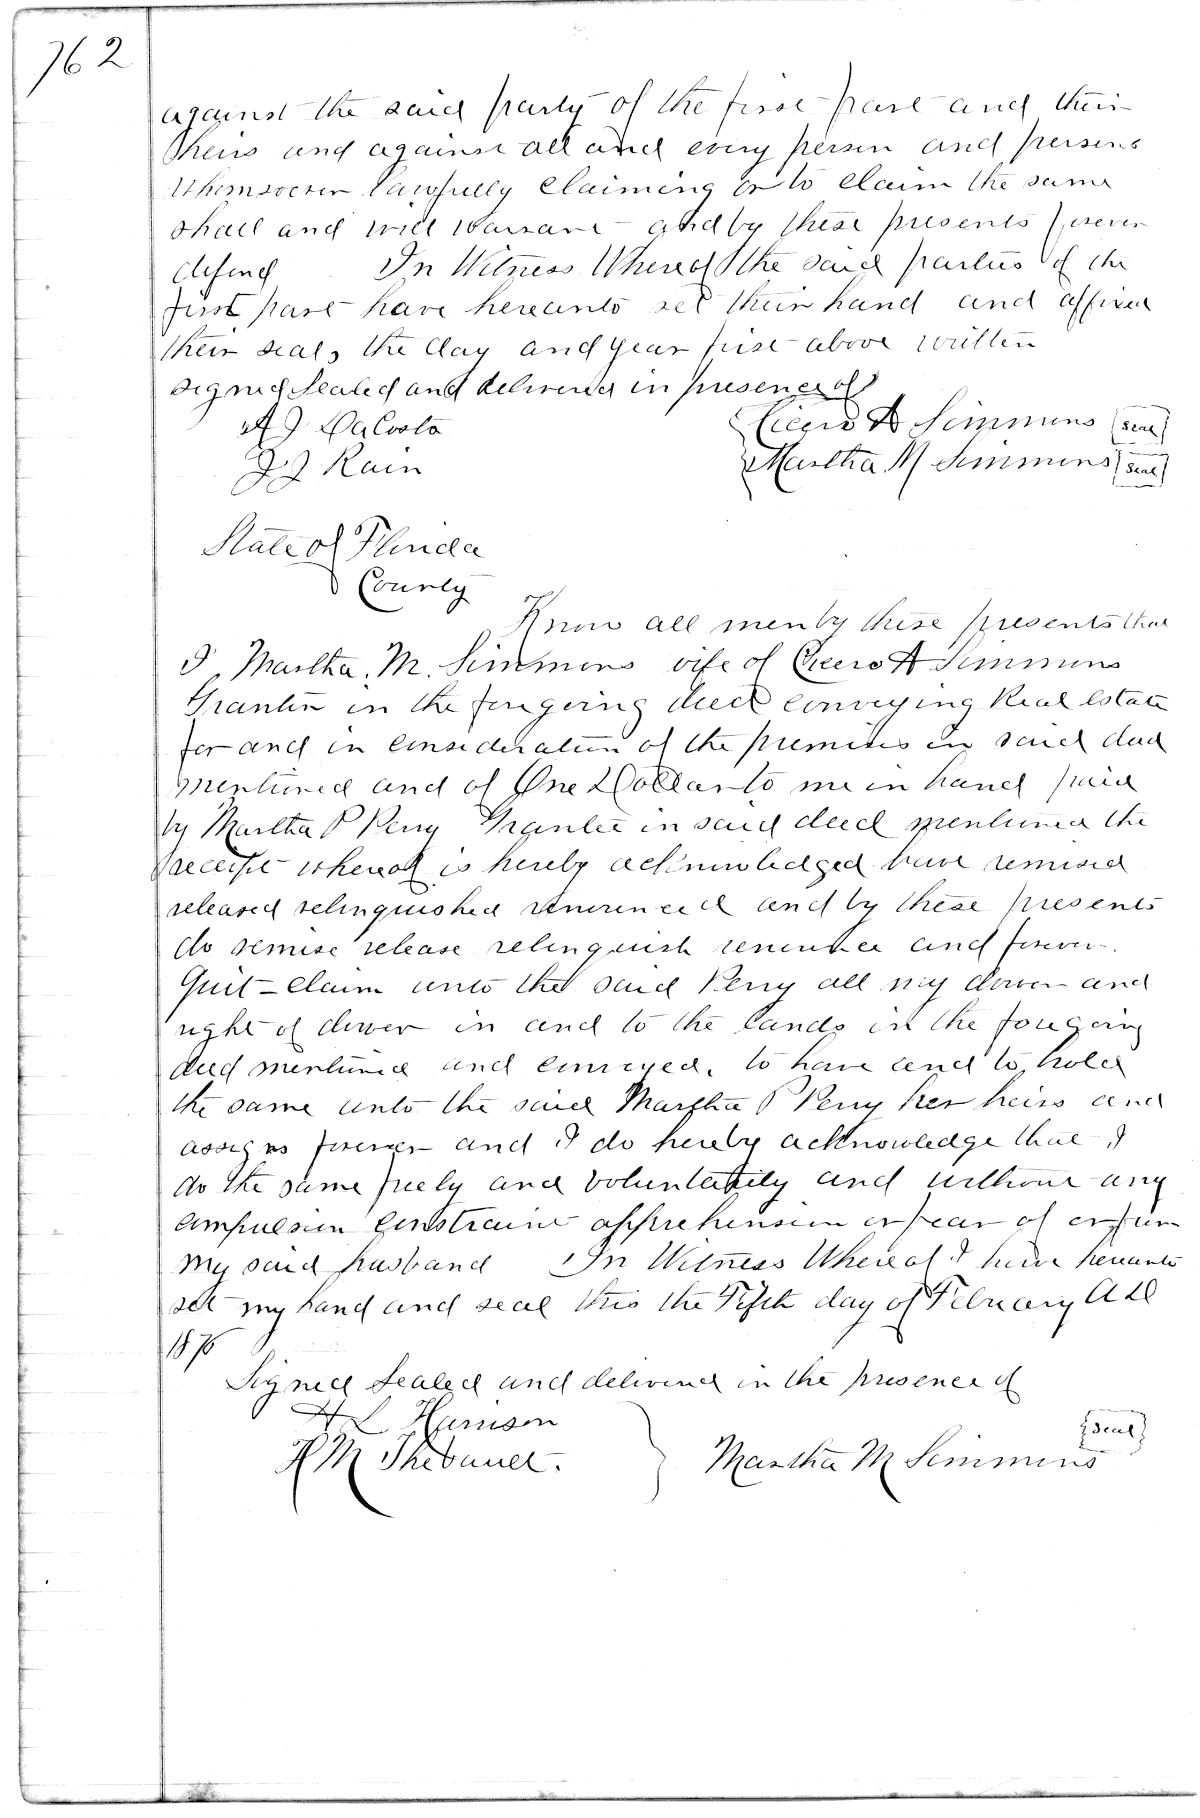 762
against the said party of the first part and their
heirs and against all and every person and persons
whomsoever lawfully claiming or to claim the same
shall and will warrant and by these presents forever
defend In Witness Whereof the said parties of the
first part have hereunto set their hand and affixed
their seals the day and year first above written
Signed Sealed and delivered in presence of
A J DaCosta Cicero A Simmons (seal)
J J Rain Martha M Simmons (seal)
State of Florida
County
Know all men by these presents that
I Martha. M. Simmons wife of Cicero A Simmons
Grantor in the foregoing deed conveying Real Estate
for and in consideration of the premises in said deed
mentioned and of One Dollar to me in hand paid
by Martha P Perry Grantee in said deed mentioned the
receipt whereof is hereby acknowledged have remised
released relinquished renounced and by these presents
do remise release relinquish renounce and forever
Quit-claim unto the said Perry all my dower and
right of dower in and to the lands in the foregoing
deed mentioned and conveyed, to have and to hold
the same unto the said Martha P Perry her heirs and
assigns forever and I do hereby acknowledge that I
do the same freely and voluntarily and without any
compulsion constraint apprehension or fear of or from
my said husband In Witness Whereof I have hereunto
set my hand and seal this the Fifth day of February A D
1876
Signed Sealed and delivered in the presence of
H L Harrison (seal)
H M Thebauet. Martha M Simmons